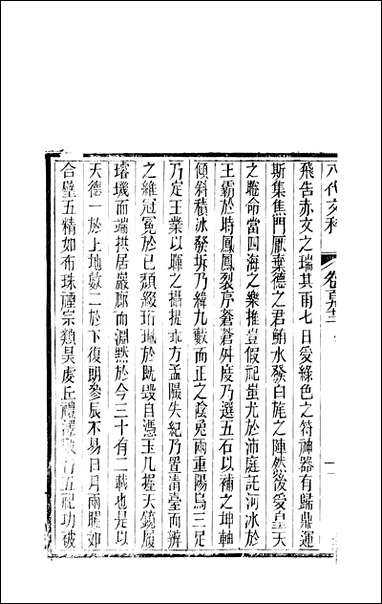 八代文粹
卷
飛告赤文之瑞其雨七日爰錄綠色之符神器有歸鼎運
斯集焦門厭棄德之君鮪水發白旄之陣然後受皇天
之睠命當四海之樂推豈假祀蚩尤於沛庭託河冰於
王霸於時鳳凰裂序蒼蒼舛度乃選五石以補之坤軸
傾斜積冰發坼乃緯九數而正之陰兔兩重陽烏三足
乃定王業以暉之攝提乖方孟陬失紀乃置淸臺而辨
之維冠冕於已頹綴珩珮於既毀自憑玉几握天鏡履
璿璣而端拱居巖廊而淵默於今三十有二載也是以
天德一於上地數二於下復朗參辰不易日月兩曜如
合璧五精如布珠禋宗類昊虔丘禮澤 行五祀功破